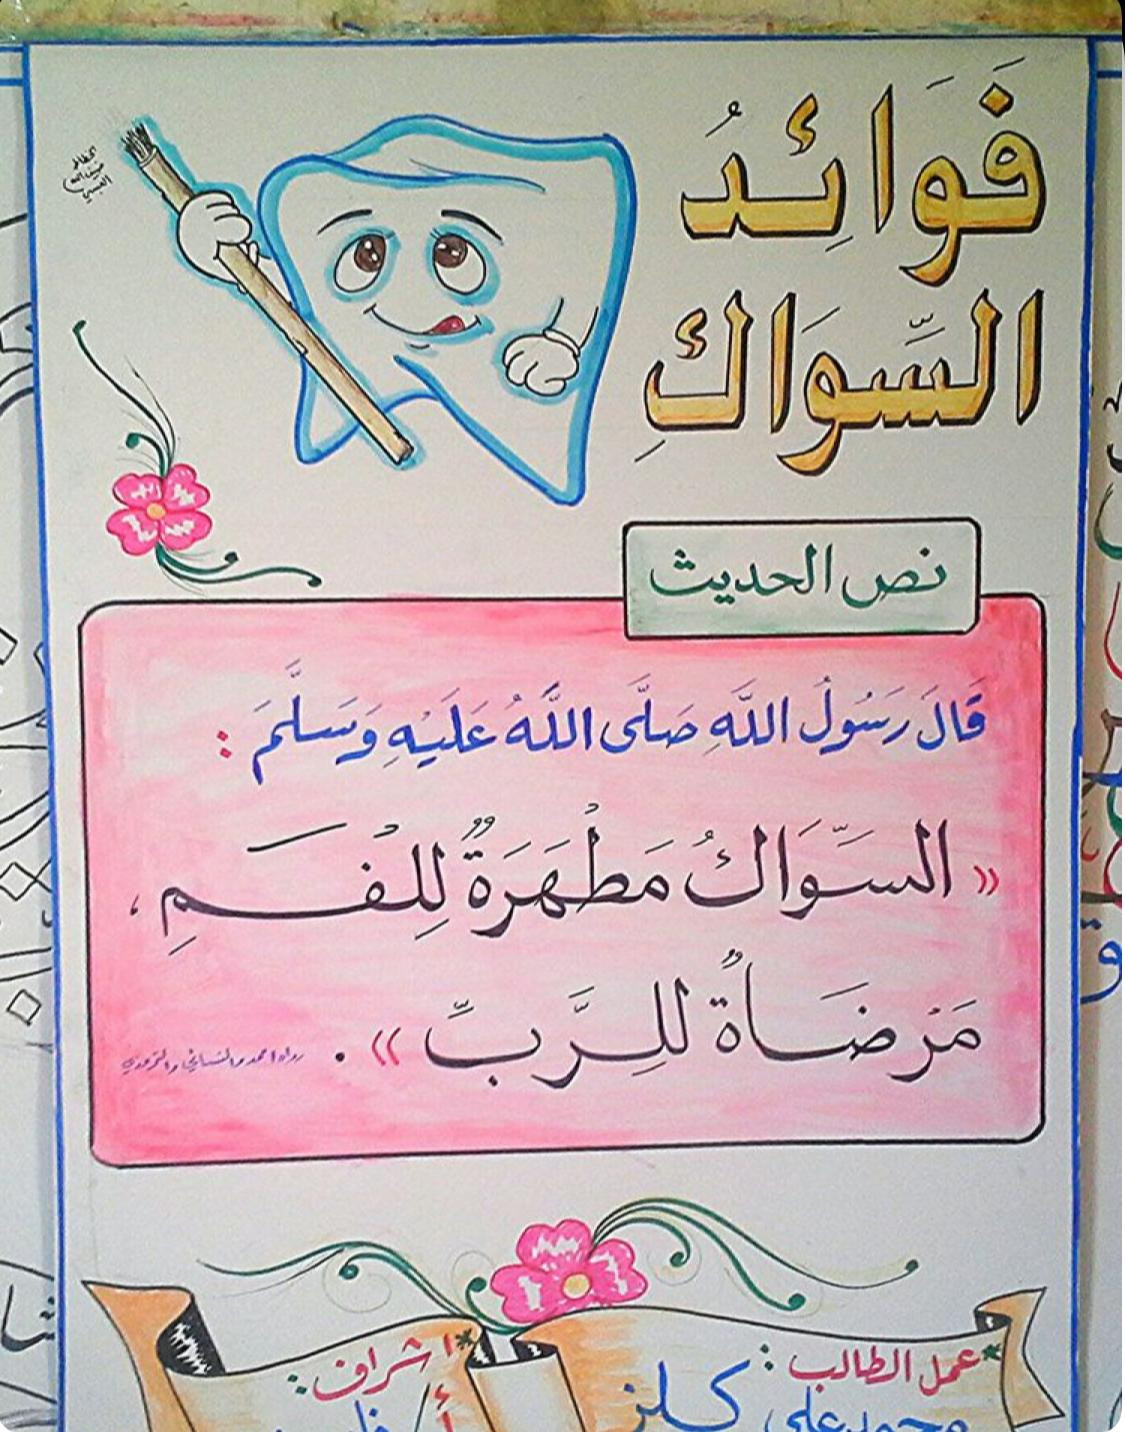 فَوَائِدُ
السِّوَاكِ
نص الحديث
قَالَ رَسُولُ اللَّهِ صَلَّى اللَّهُ عَلَيْهِ وَسَلَّمَ :
« السِّوَاكُ مَطْهَرَةٌ لِلْفَمِ ،
مَرْضَاةٌ للِرَّبِّ » . رواه احمد والنسائي والترمذي
*عمل الطالب : *اشراف :
محمد علي كلز أ/